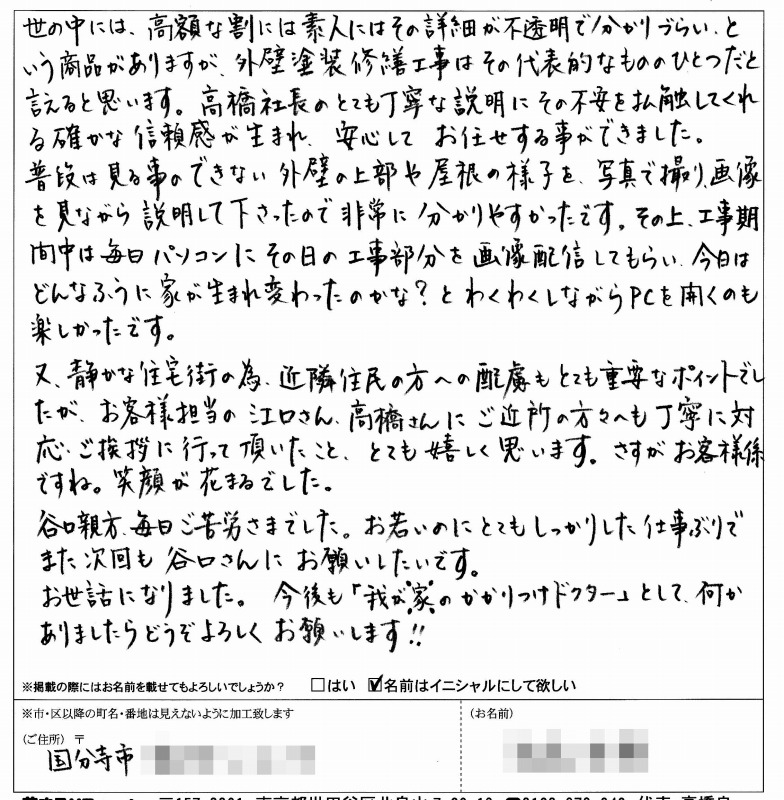 世の中には、高額な割には素人にはその詳細が不透明で分かりづらい、と
いう商品がありますが、外壁塗装修繕工事はその代表的なもののひとつだと
言えると思います。高橋社長のとても丁寧な説明にその不安を払触してくれ
る確かな信頼感が生まれ、安心して お任せする事ができました。
普段は見る事のできない外壁の上部や屋根の様子を、写真で撮り、画像
を見ながら説明して下さったので非常に分かりやすかったです。その上、工事期
間中は毎日パソコンにその日の工事部分を画像配信してもらい、今日は
どんなふうに家が生まれ変わったのかな?とわくわくしながらPCを開くのも
楽しかったです。
又、静かな住宅街の為、近隣住民の方への配慮もとても重要なポイントでし
たが、お客様担当の江口さん、高橋さんにご近所の方々へも丁寧に対
応・ご挨拶に行って頂いたこと、とても嬉しく思います。さすがお客様係
ですね。笑顔が花まるでした。
谷口親方、毎日ご苦労さまでした。お若いのにとてもしっかりした仕事ぶりで
また次回も谷口さんにお願いしたいです。
お世話になりました。 今後も「我が家のかかりつけドクター」として、何か
ありましたらどうぞよろしくお願いします!!
※掲載の際にはお名前を載せてもよろしいでしょうか? □はい ☑名前はイニシャルにして欲しい
※市・区以降の町名・番地は見えないように加工致します
(お名前)
(ご住所) 〒
国分寺市